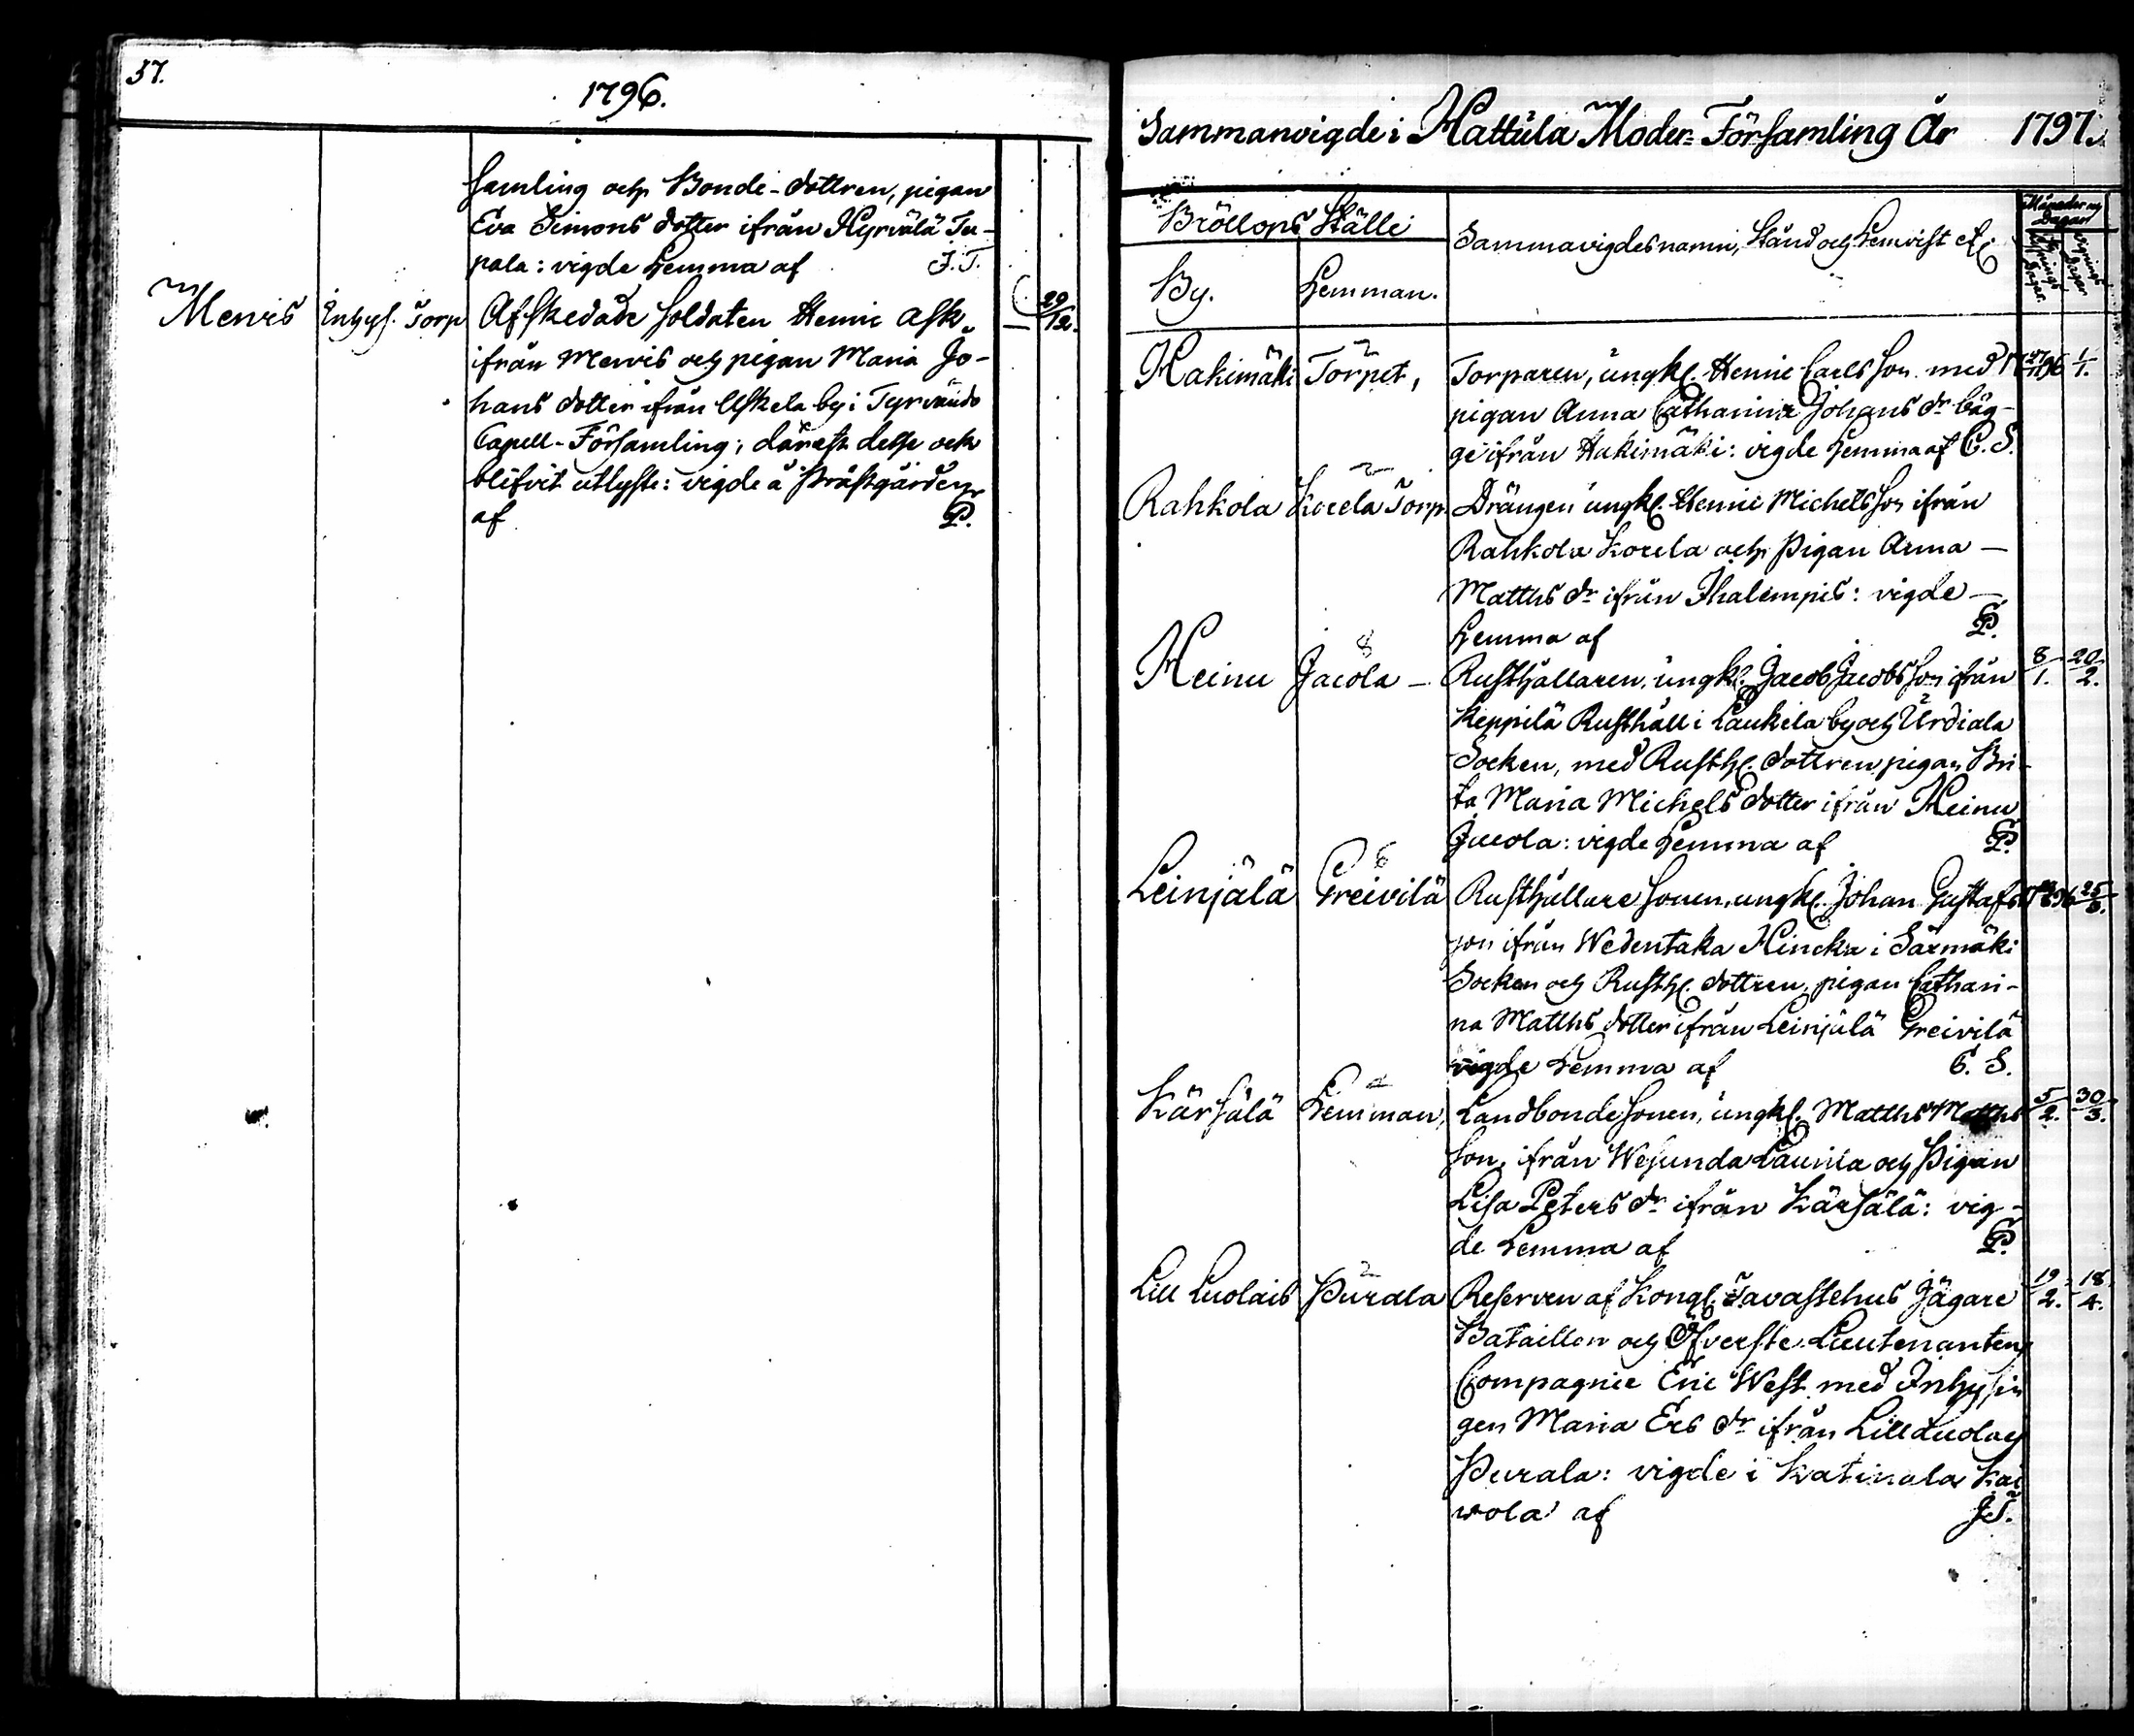 37.
1796.
samling och Bonde-dottren, pigan
Eva Simons dotter ifrån Hyrvälä Tu-
pala: vigde hemma af J. T.
Mervis Inhys. Torp Afskedade soldaten Henric Ask, — 29/12.
ifrån Mervis och pigan Maria Jo-
hans dotter ifrån Uskela by i Tyrvändö
Capell-Församling, därest desse ock
blifvit utlyste: vigde å Prästgården
af P.
Sammanvigde i Hattula Moder-Församling År 1797.
Bröllops Ställe
Månader och Dagar
Sammavigdes namn, Stånd och hemvist etc.
By. Hemman.
Hakimäki Torpet, Torparen, ungk. Henric Carlsson med 1/1.
pigan Anna Catharina Johans dr. båg-
ge ifrån Hakimäki: vigde hemma af C. S.
Rahkola Korela Torp. Drängen ungk. Henric Michelsson ifrån
Rahkola Korela och Pigan Anna —
Matths dr ifrån Ihalempis: vigde —
hemma af P.
Heinu Jacola — Rusthållaren, ungk. Jacob Jacobsson ifrån 8/1. 20/2.
Keppilä Rusthåll i Laukela by och Urdiala
Socken, med Rusth. dottren pigan Bri-
ta Maria Michels dotter ifrån Heinu
Jacola: vigde hemma af P.
Leinjälä Greivilä Rusthållare sonen, ungk. Johan Gustafs- 25/3.
son ifrån Wedentaka Hincka i Särmäki
Socken och Rusth. dottren, pigan Cathari-
na Matths dotter ifrån Leinjälä Greivilä
vigde hemma af C. S.
Kärsälä Hemman, Landbonde sonen, ungk. Matths Matths 5/2. 30/3.
son, ifrån Wesunda Laurila och Pigan
Lisa Peters dr ifrån Kärsälä: vig-
de hemma af P.
Lill Luolais Purala Reserven af Kongl. Tavastehus Jägare 19/2. 18/4.
Bataillon och Öfverste Lieutenantens
Compagnie Eric West med Inhysin
gen Maria Ers dr ifrån Lill Luolais
Purala: vigde i Katinala Kai
vola af J. T.